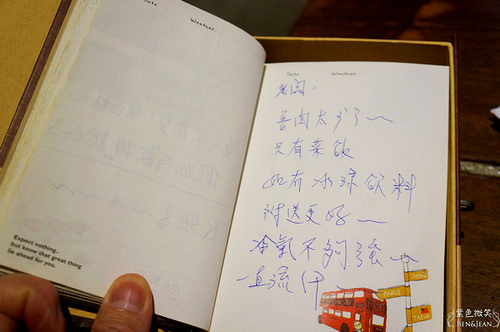 Date
Weather
Expect nothing..
but know that great thing
lie ahead for you.
Date Weather
老闆.
魯肉太少了～
只有菜飯
如有冰涼飲料
附送更好～
冷氣不夠強～
一直流汗～
PARIS
紫色微笑
BEN&JEAN